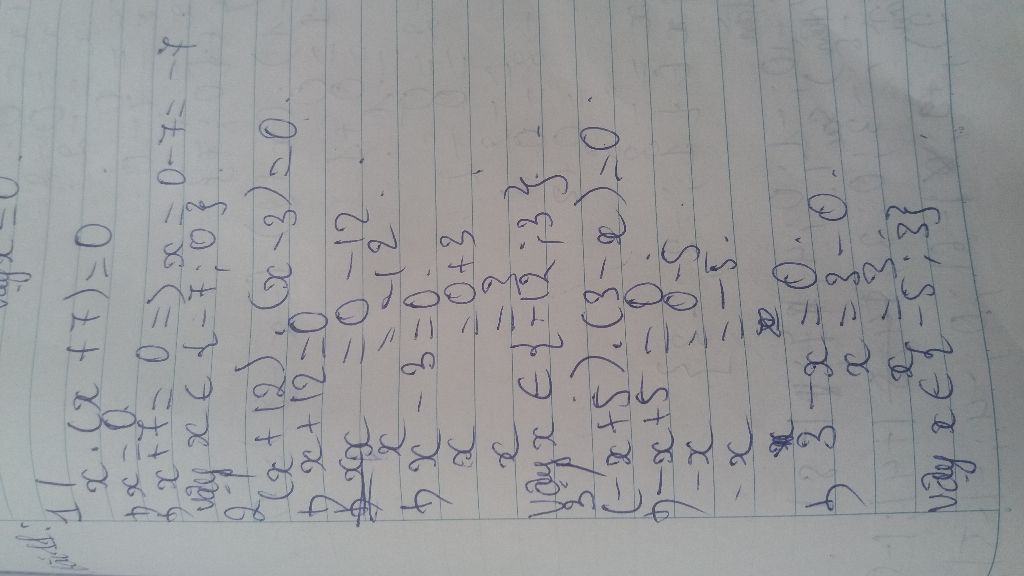 vậy x=0
1/
x.(x+7)=0
x=0
x+7=0=)x=0-7=-7
vậy x ∈ {-7;0}
2)
(x+12).(x-3)=0.
x+12=0
x =0-12
x =-12.
x-3=0.
x =0+3
x =3
Vậy x ∈ {-12;3}.
3)
(-x+5).(3-x)=0.
-x+5=0.
-x =0-5
-x =-5.
3-x=0.
x=3-0.
x=3.
Vậy x∈{-5;3}